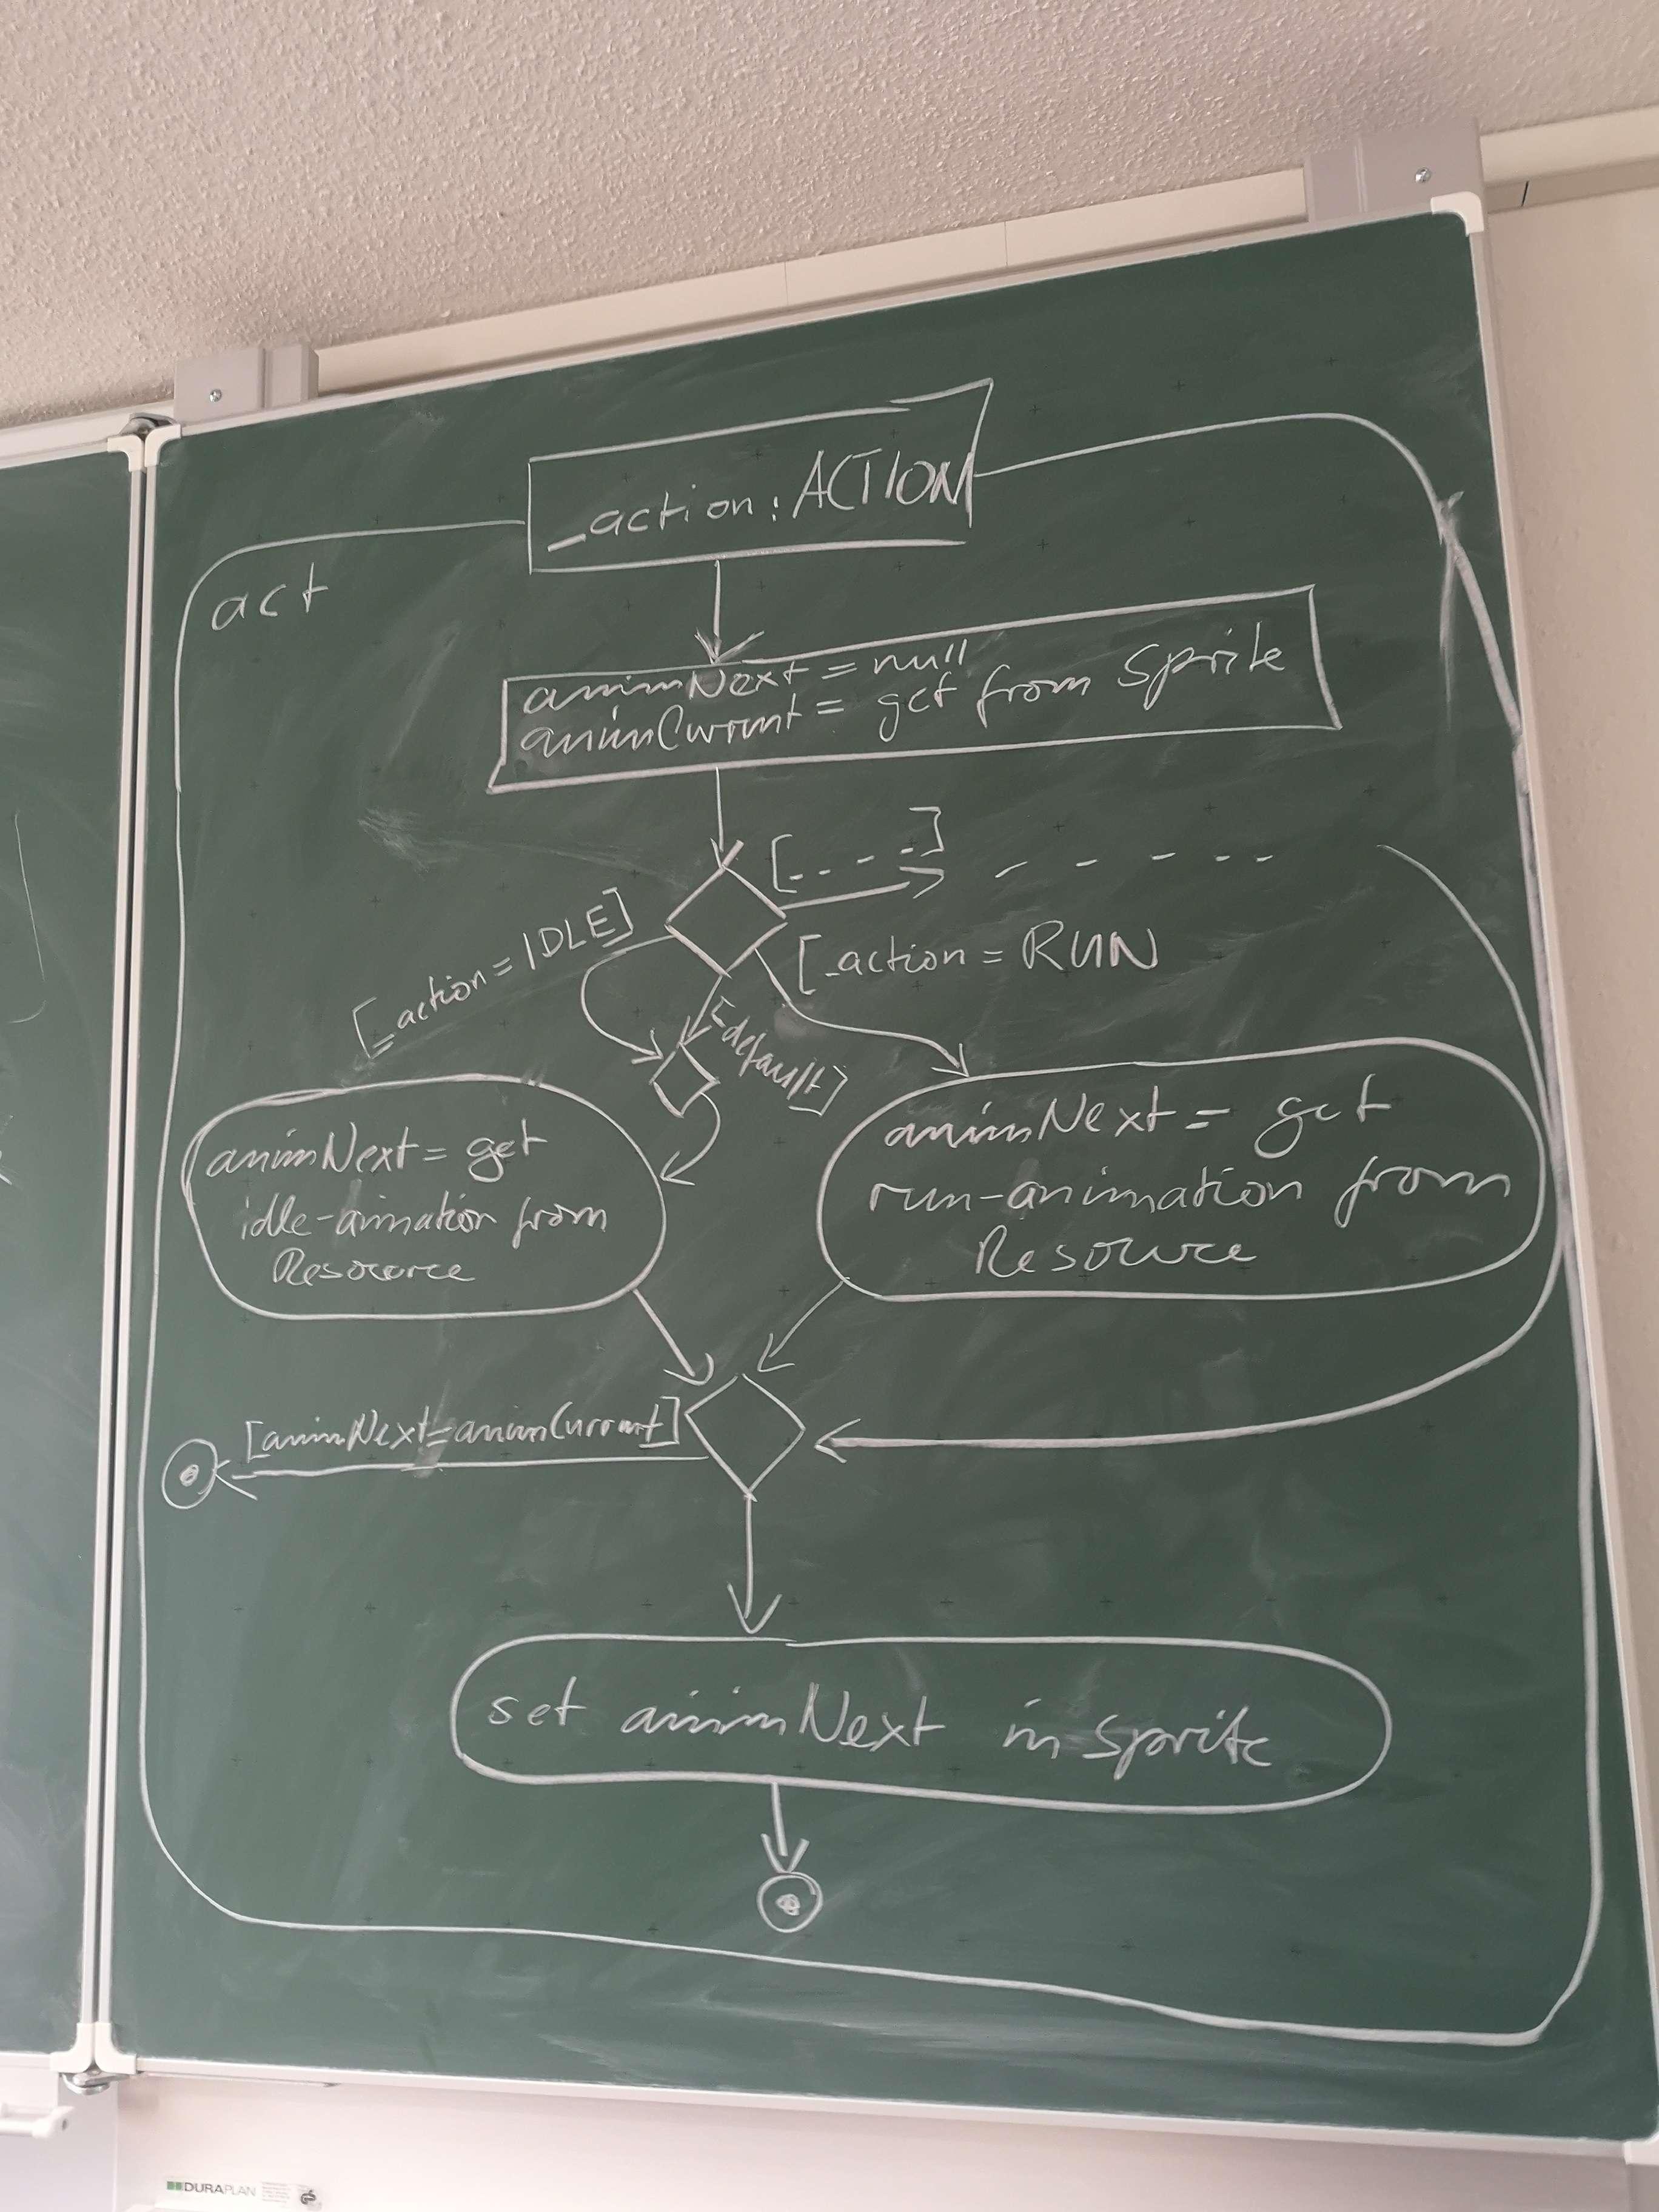 _action: ACTION
act
animNext = null
animCurrent = get from Sprite
[....]
[_action = IDLE]
[_action = RUN
[default]
animNext = get
idle-animation from
Resource
animNext = get
run-animation from
Resource
[animNext = animCurrent]
set animNext in sprite
DURAPLAN